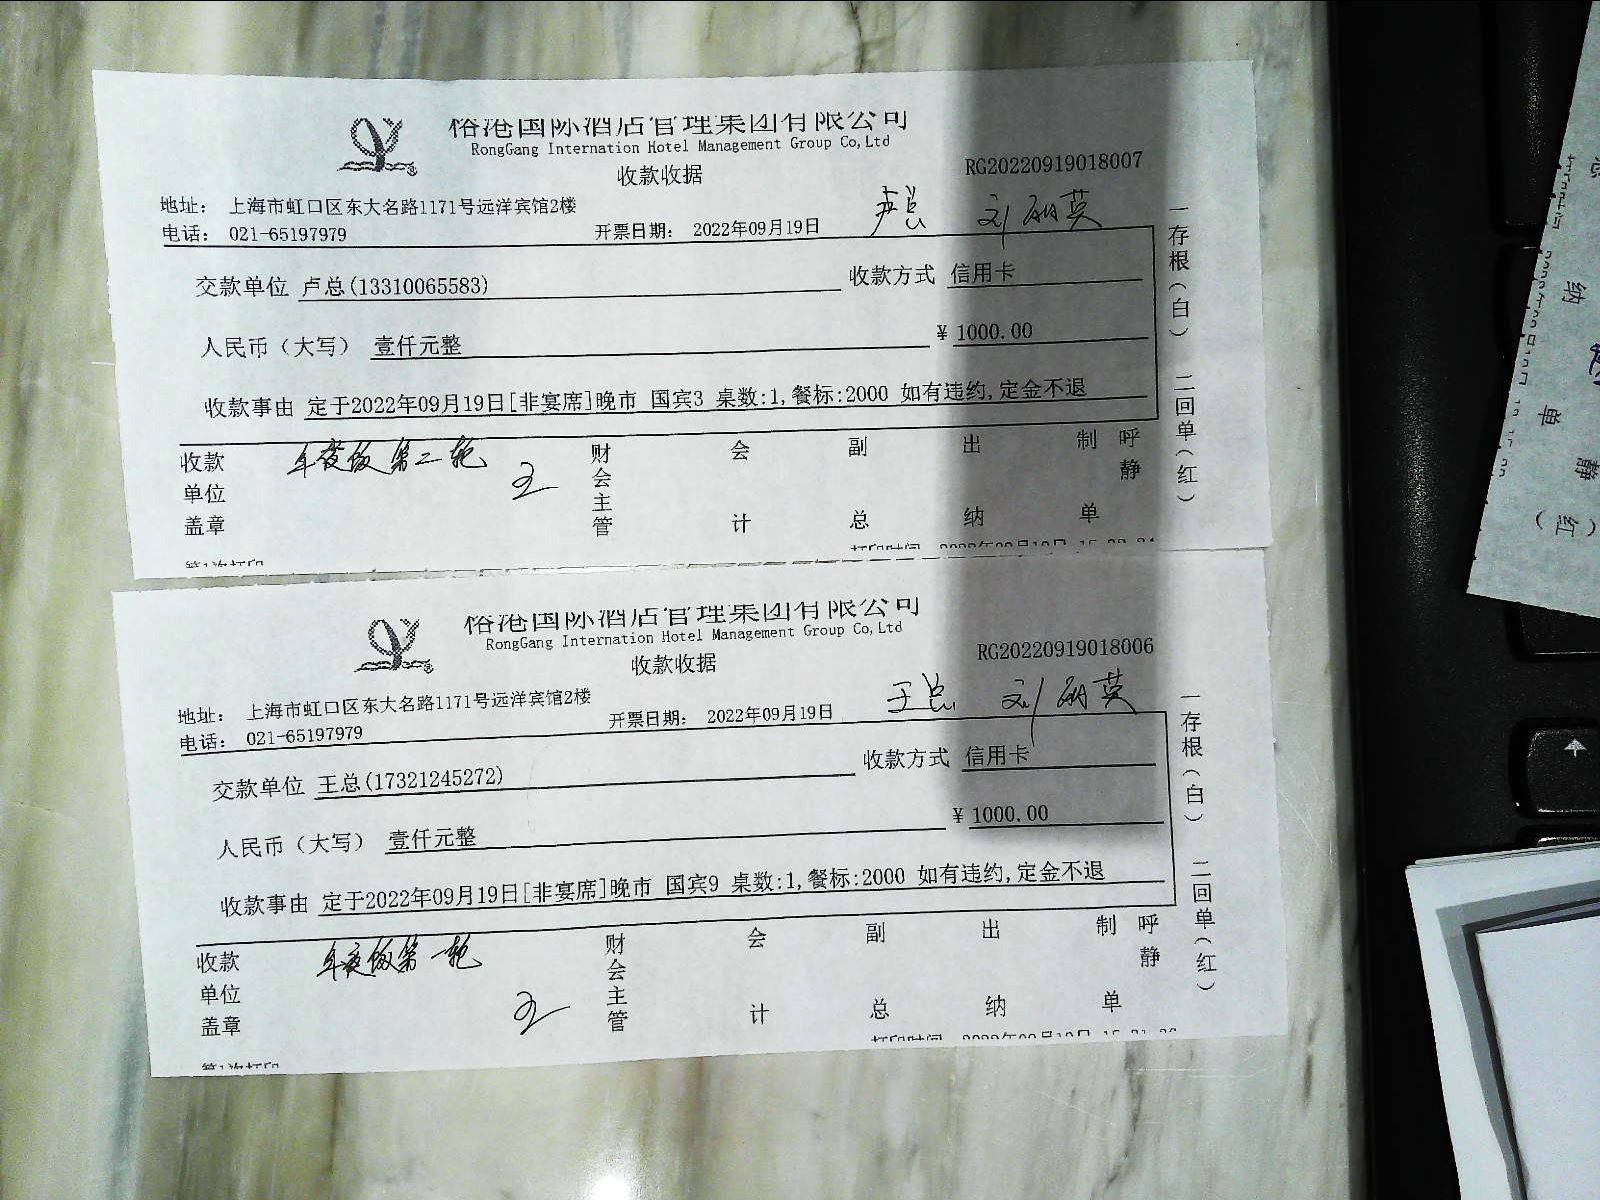 裕港国际酒店管理集团有限公司
RongGang Internation Hotel Management Group Co,Ltd
收款收据
RG20220919018007
地址： 上海市虹口区东大名路1171号远洋宾馆2楼
卢总 刘丽英
电话： 021-65197979 开票日期： 2022年09月19日
交款单位 卢总(13310065583) 收款方式 信用卡
人民币（大写） 壹仟元整 ¥ 1000.00
收款事由 定于2022年09月19日[非宴席]晚市 国宾3 桌数:1,餐标:2000 如有违约,定金不退
收款单位盖章 年夜饭第二轮 财会主管 会计 副总 出纳 制单 呼静
一存根（白） 二回单（红）
第1次打印
裕港国际酒店管理集团有限公司
RongGang Internation Hotel Management Group Co,Ltd
收款收据
RG20220919018006
地址： 上海市虹口区东大名路1171号远洋宾馆2楼
王总 刘丽英
电话： 021-65197979 开票日期： 2022年09月19日
交款单位 王总(17321245272) 收款方式 信用卡
人民币（大写） 壹仟元整 ¥ 1000.00
收款事由 定于2022年09月19日[非宴席]晚市 国宾9 桌数:1,餐标:2000 如有违约,定金不退
收款单位盖章 年夜饭第一轮 财会主管 会计 副总 出纳 制单 呼静
一存根（白） 二回单（红）
第1次打印
纳 单 静 （红）